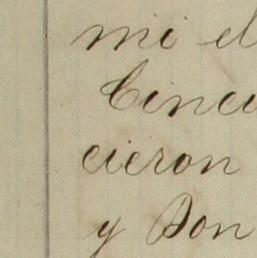 mi el
Cincu
cieron
y Don